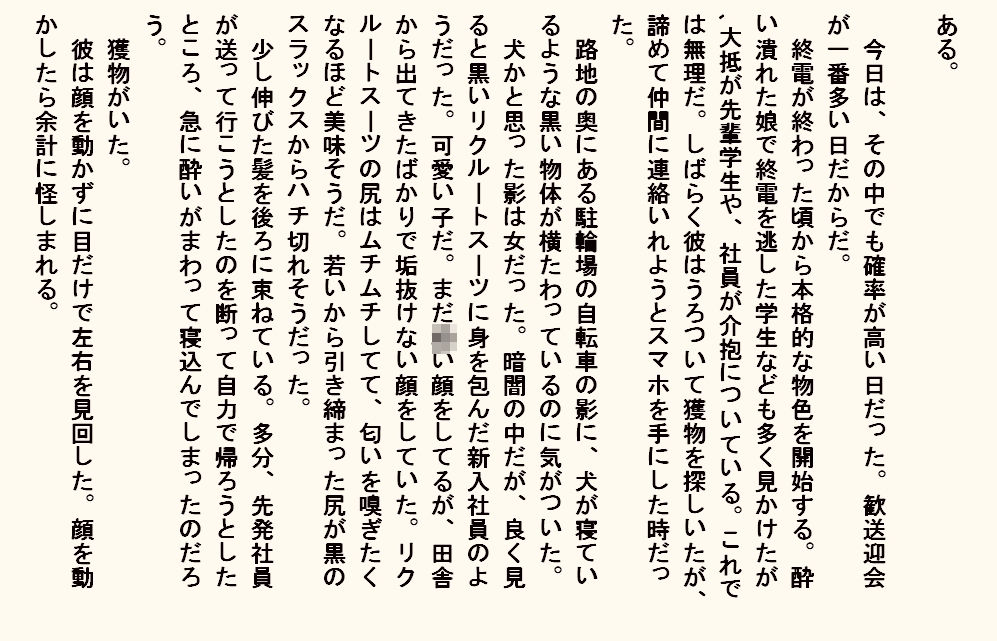 ある。
今日は、その中でも確率が高い日だった。歓送迎会
が一番多い日だからだ。
終電が終わった頃から本格的な物色を開始する。酔
い潰れた娘で終電を逃した学生なども多く見かけたが
、大抵が先輩学生や、社員が介抱についている。これで
は無理だ。しばらく彼はうろついて獲物を探しいたが、
諦めて仲間に連絡いれようとスマホを手にした時だっ
た。
路地の奥にある駐輪場の自転車の影に、犬が寝てい
るような黒い物体が横たわっているのに気がついた。
犬かと思った影は女だった。暗闇の中だが、良く見
ると黒いリクルートスーツに身を包んだ新入社員のよ
うだった。可愛い子だ。まだい顔をしてるが、田舎
から出てきたばかりで垢抜けない顔をしていた。リク
ルートスーツの尻はムチムチしてて、匂いを嗅ぎたく
なるほど美味そうだ。若いから引き締まった尻が黒の
スラックスからハチ切れそうだった。
少し伸びた髪を後ろに束ねている。多分、先発社員
が送って行こうとしたのを断って自力で帰ろうとした
ところ、急に酔いがまわって寝込んでしまったのだろ
う。
獲物がいた。
彼は顔を動かずに目だけで左右を見回した。顔を動
かしたら余計に怪しまれる。